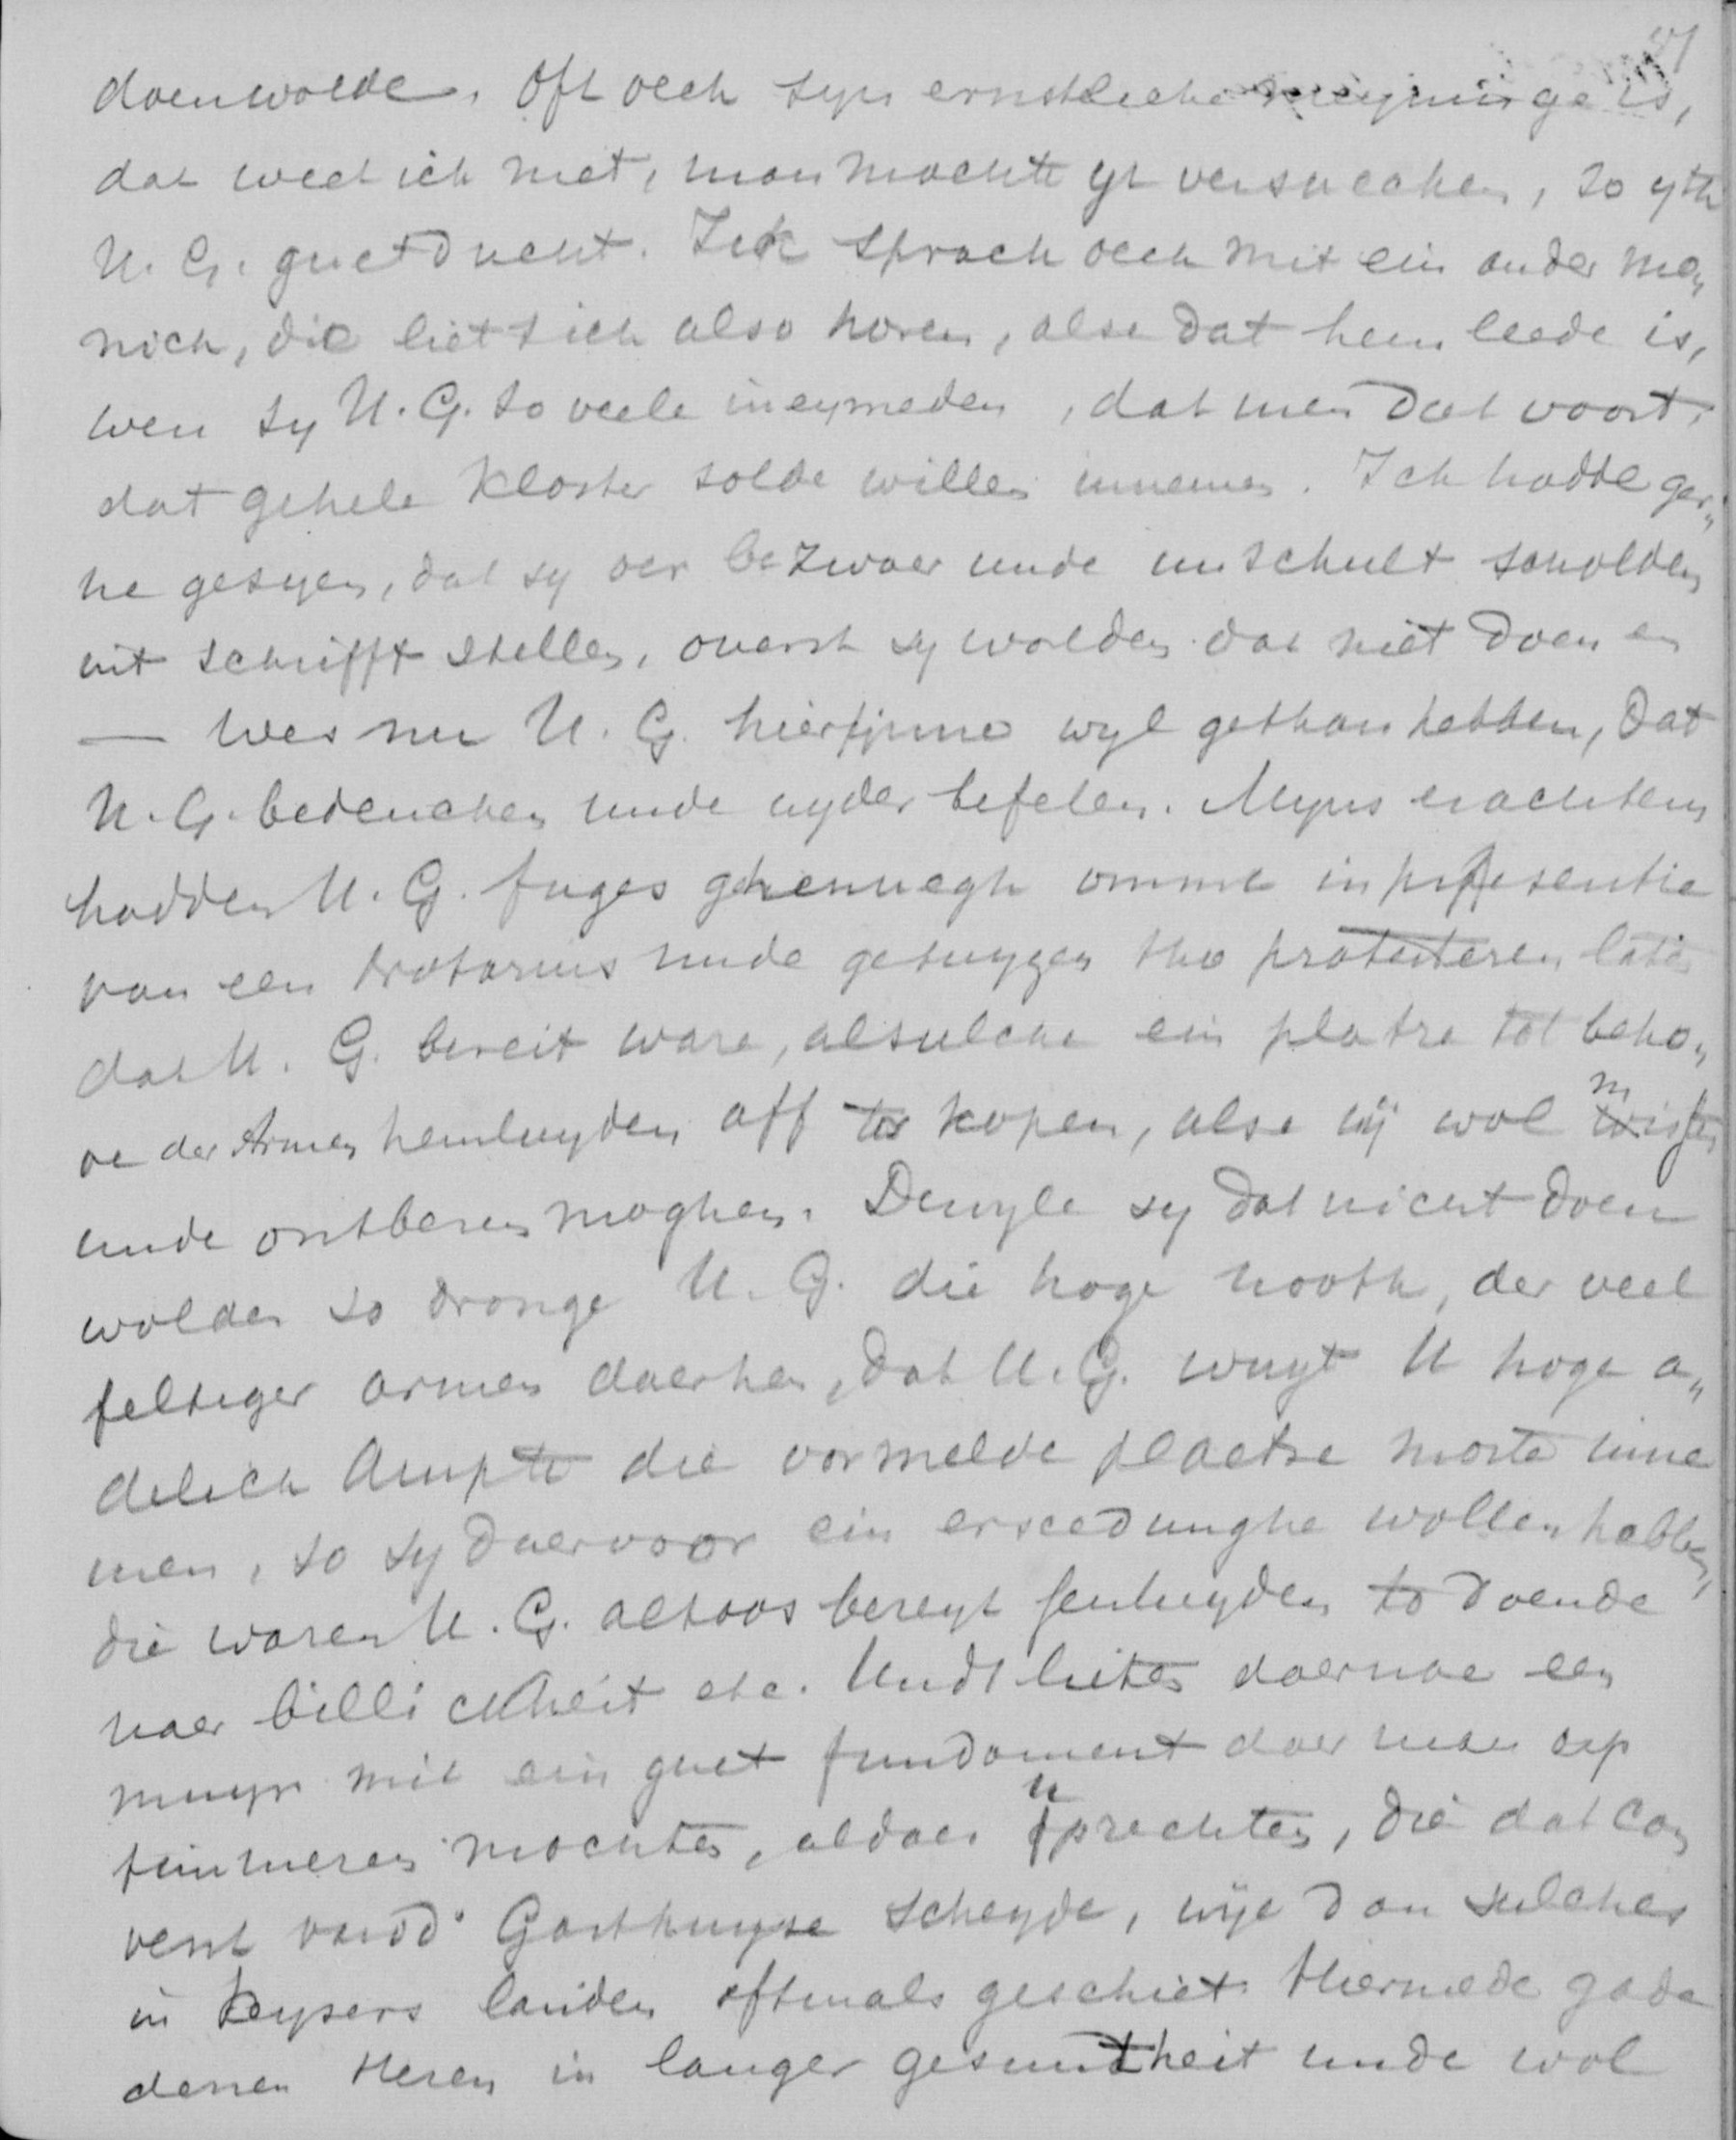 doen wolde. Oft oech syn ernstliche meyninge is,
dat weet ich niet, man mochte yt versuecken, so yth
U. G. guetduecht. Ick sprach oech mit ein ander mo„
nich, die liet sich also horen, alse dat hem leede is,
wen sy U. G. so veele ineymeden, dat men dat voort,
dat gehele kloster solde willen innemen. Ich hadde ger„
ne gesyen, dat sy oer bezwaer unde unschult scholden
int schrifft stellen, overst sy wolden dat niet doen en
— Wes nu U. G. hierjnne wyl gethan hebben, dat
U. G. bedencken unde wyder befelen. Myns erachtens
hadden U. G. fuges ghenuegh omme in presentie
van een Notarius unde getuygen tho protesteren laten
dat U. G. bereit ware, alsulche ein platze tot beho„
ve der Armen hemluyden aff to kopen, alse sij wol missen
unde ontberen moghen. Dewyle sy dat nicht doen
wolden so dronge U. G. die hoge nooth, der veel
feltiger armen daerhen, dat U. G. wuyt U hoge a„
delich Ampte die vormelde plaetse moste inne
men, so sy daervoor ein ersceedunghe wollen hebben,
die waren U. G. altoos bereyt henluyden to doende
naer billickheit etc. Undt lieten daernae een
muyr mit ein guet fundament daer men op
timmeren mochten, aldaer uprechten, die dat Con
vent vand' Gasthuyse scheyde, wye dan sulches
in keysers landen oftmals geschiet. Hiermede gode
denen Heren in langer gesuntheit unde wol